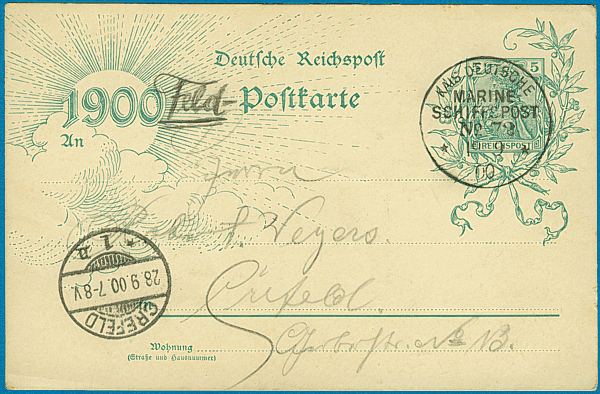 Deutsche Reichspost
1900 Feld-Postkarte
An
Herrn
Weyers.
Crefeld.
No 13.
Wohnung
(Straße und Hausnummer)
5
REICHSPOST
KAIS. DEUTSCHE
MARINE-
SCHIFFSPOST
No 73
00
CREFELD
28.9.00.7-8V.
* 1 n